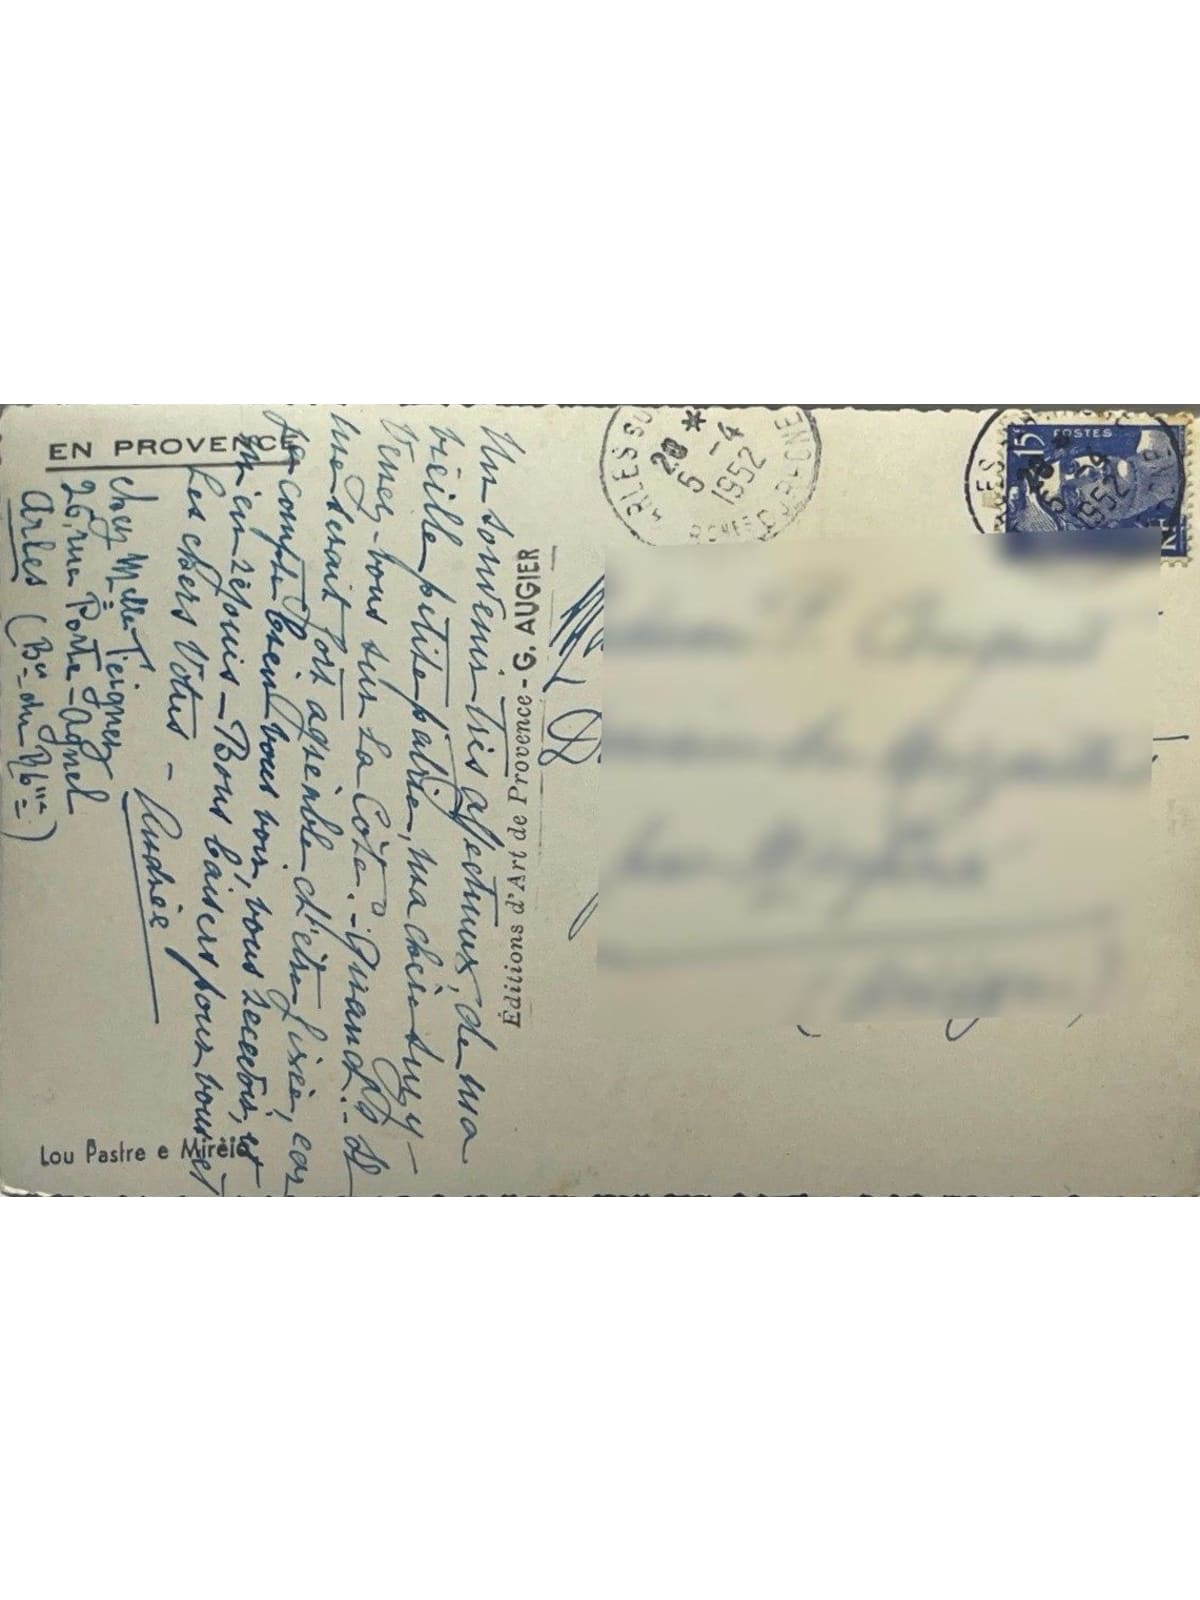 EN PROVENCE
Un souvenir très affectueux, de ma
vieille petite patrie, ma chère Suzy –
Venez-vous sur la Côte. – Quand? – Il
me serait fort agréable d'être fixée, car
je compte bien vous voir, vous recevoir, et
m'en réjouis – Bons baisers pour vous et
Les chers Vôtres – Andrée
chez Melle
26, rue Porte-Agnel
Arles (Bes du Rhône)
Lou Pastre e Mirèio
Éditions d'Art de Provence - G. AUGIER
ARLES SU
20 *
5 -4
1952
RHONE
15
POSTES
20 *
5 -4
1952